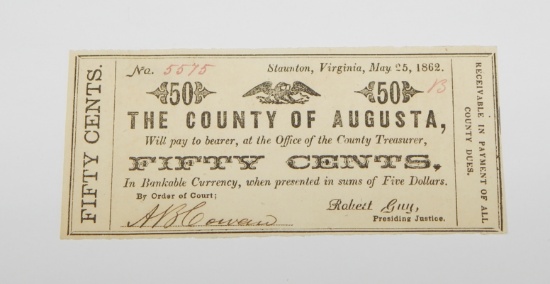 FIFTY CENTS.
No. 5575 Staunton, Virginia, May 25, 1862.
50 50 13
THE COUNTY OF AUGUSTA,
Will pay to bearer, at the Office of the County Treasurer,
FIFTY CENTS,
In Bankable Currency, when presented in sums of Five Dollars.
By Order of Court;
A B Cowan
Robert Guy,
Presiding Justice.
RECEIVABLE IN PAYMENT OF ALL
COUNTY DUES.